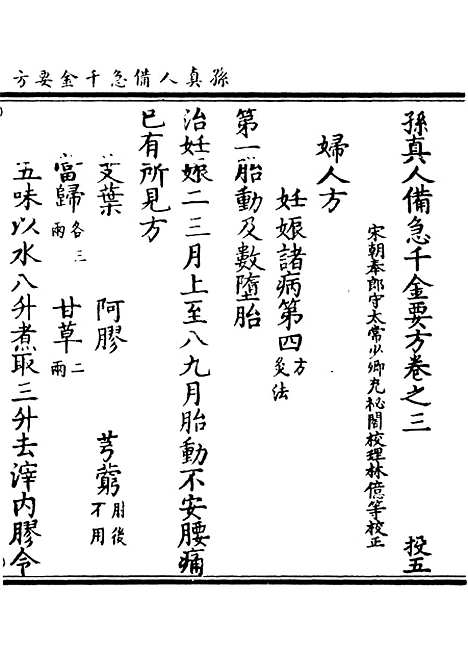 孫真人備急千金要方
孫真人備急千金要方卷之三 投五
宋朝奉郎守太常少卿充秘閣校理林億等校正
婦人方
妊娠諸病第四方灸法
第一胎動及數墮胎
治妊娠二三月上至八九月胎動不安腰痛
已有所見方
艾葉 阿膠 芎藭肘後不用
當歸各三兩 甘草二兩
五味以水八升煮取三升去滓内膠令